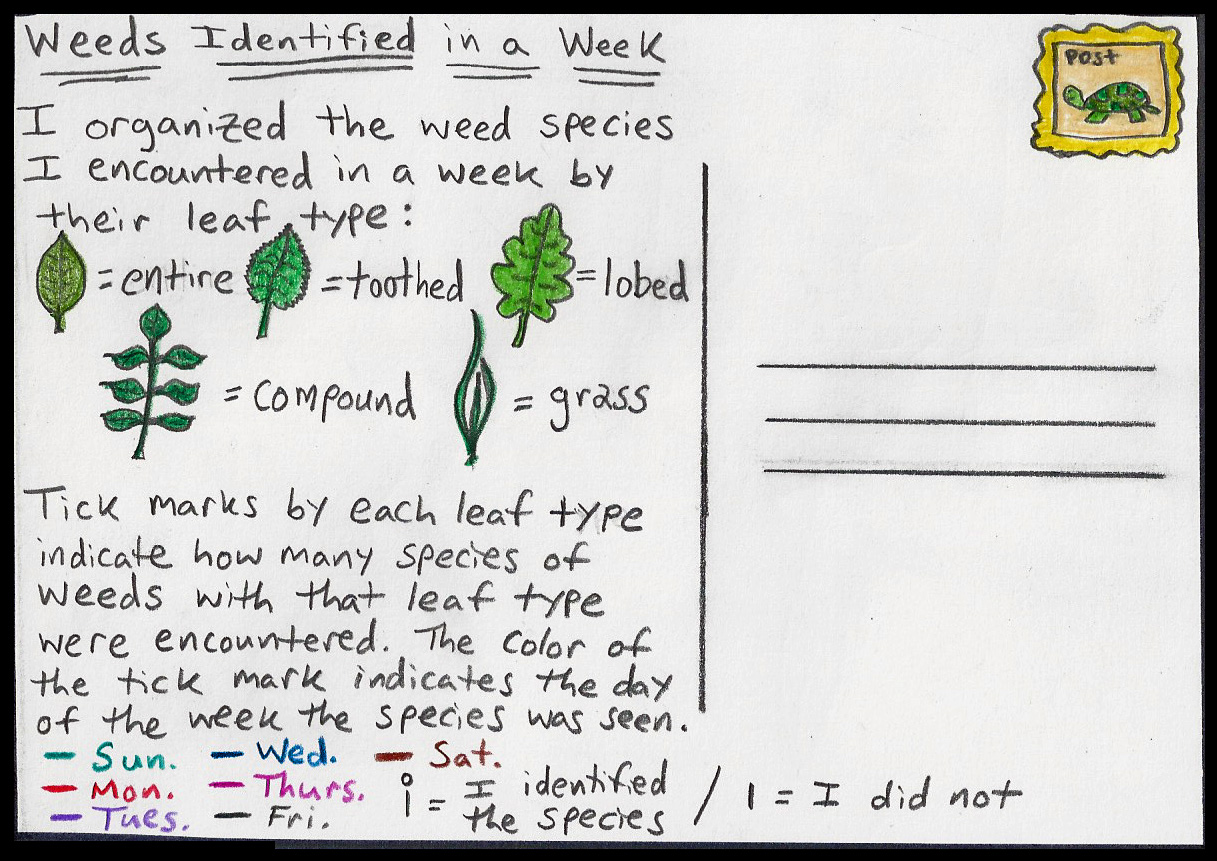 Weeds Identified in a Week
POST
I organized the weed species
I encountered in a week by
their leaf type:
= entire = toothed = lobed
= compound = grass
Tick marks by each leaf type
indicate how many species of
weeds with that leaf type
were encountered. The color of
the tick mark indicates the day
of the week the species was seen.
— Sun. — Wed. — Sat.
— Mon. — Thurs.
— Tues. — Fri.
= I identified
the species / | = I did not